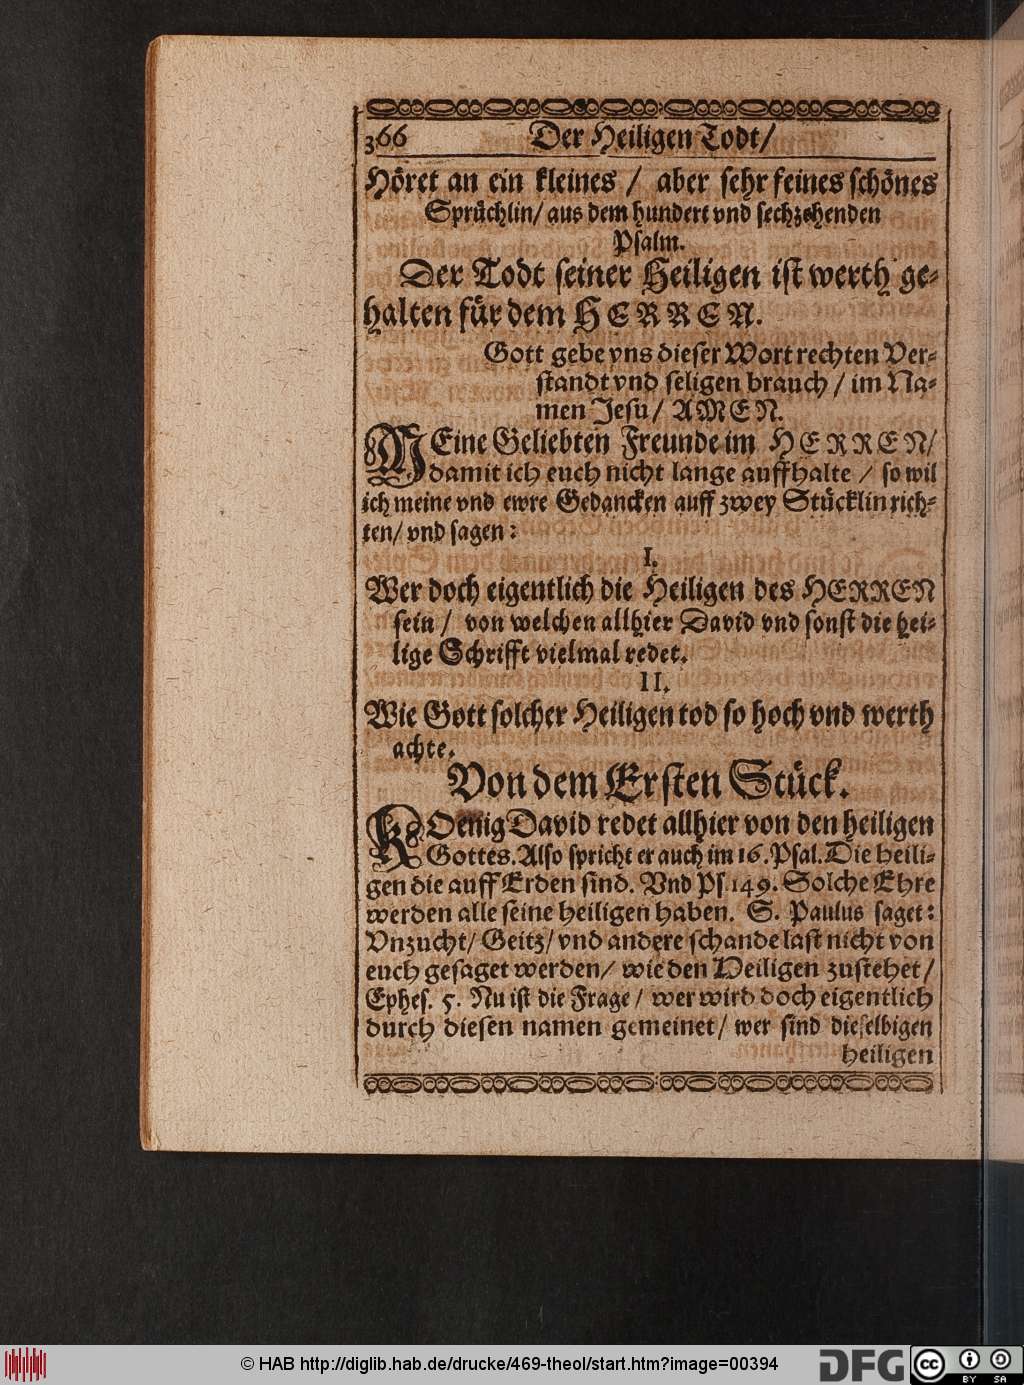 366 Der Heiligen Todt/
Höret an ein kleines / aber sehr feines schönes
Sprüchlin/ aus dem hundert vnd sechzehenden
Psalm.
Der Todt seiner Heiligen ist werth ge-
halten für dem HERREN.
Gott gebe vns dieser Wort rechten Ver-
standt vnd seligen brauch / im Na-
men Jesu / AMEN.
MEine Geliebten Freunde im HERREN/
damit ich euch nicht lange auffhalte / so wil
ich meine vnd ewre Gedancken auff zwey Stücklin rich-
ten/ vnd sagen:
I.
Wer doch eigentlich die Heiligen des HERREN
sein / von welchen allhier David vnd sonst die hei-
lige Schrifft vielmal redet.
II.
Wie Gott solcher Heiligen tod so hoch vnd werth
achte.
Von dem Ersten Stück.
KOenig David redet allhier von den heiligen
Gottes. Also spricht er auch im 16. Psal. Die heili-
gen die auff Erden sind. Vnd Ps. 149. Solche Ehre
werden alle seine heiligen haben. S. Paulus saget:
Vnzucht/ Geitz/ vnd andere schande last nicht von
euch gesaget werden/ wie den Heiligen zustehet/
Ephes. 5. Nu ist die Frage / wer wird doch eigentlich
durch diesen namen gemeinet/ wer sind dieselbigen
heiligen
© HAB http://diglib.hab.de/drucke/469-theol/start.htm?image=00394
DFG
cc BY SA